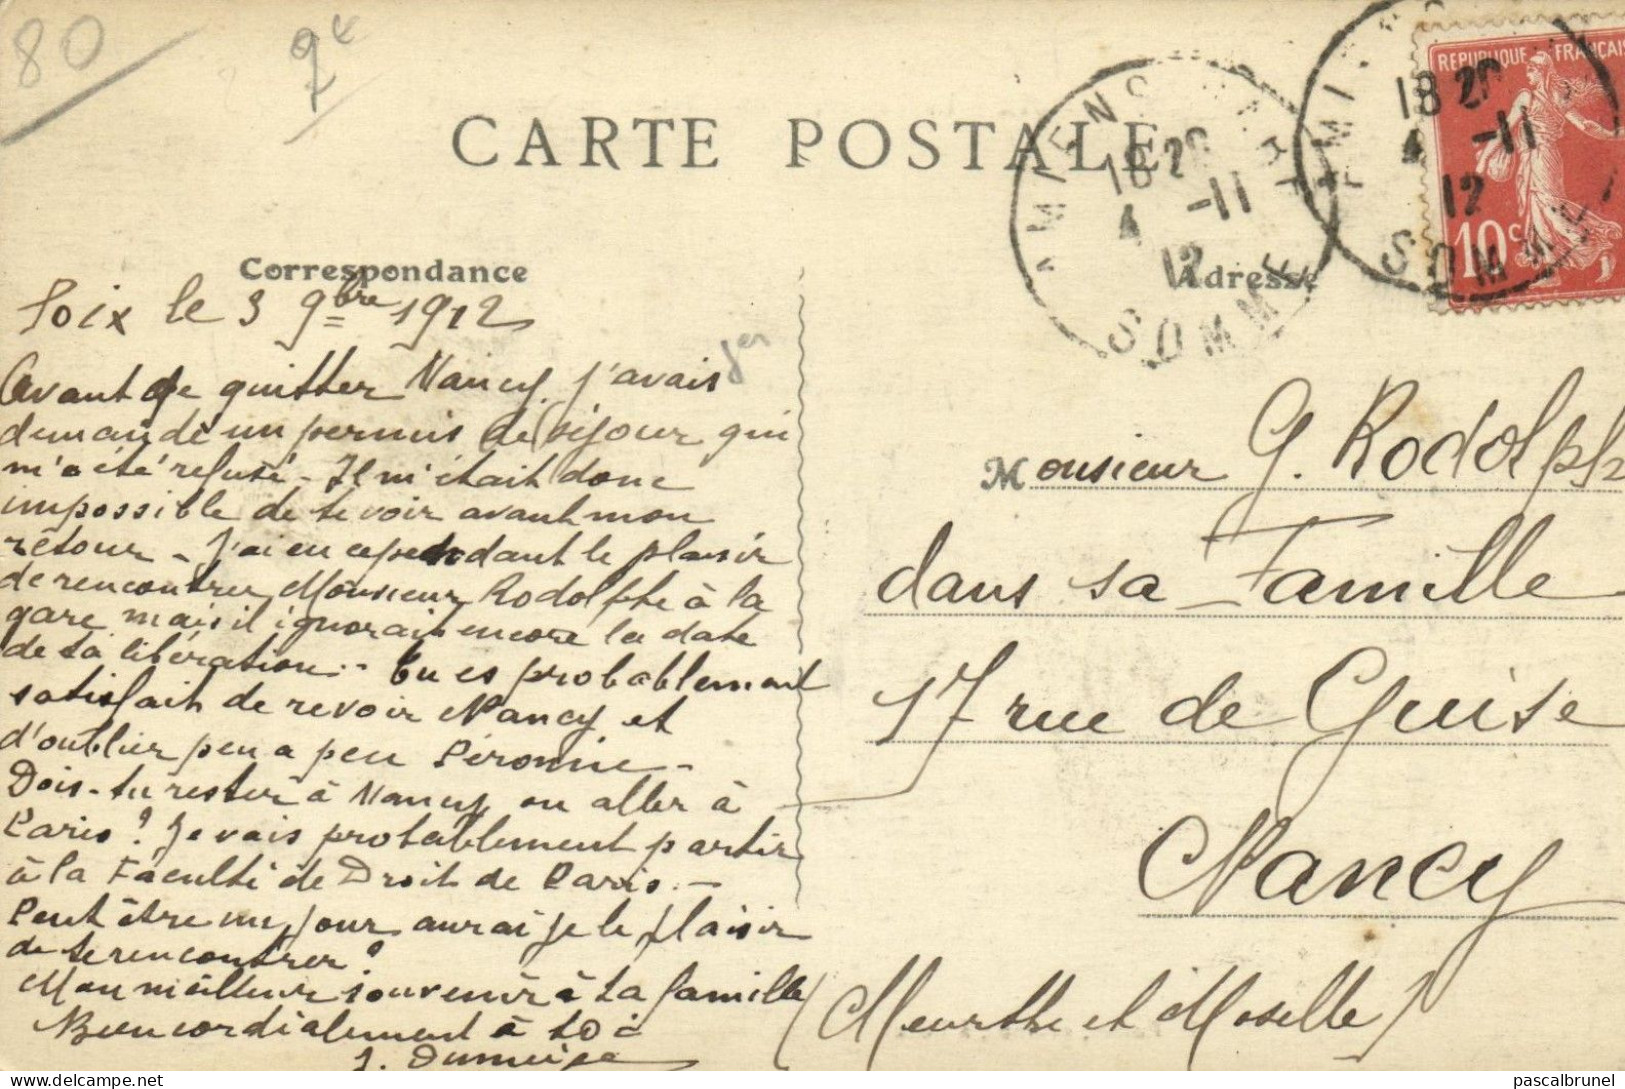 80
9e
CARTE POSTALE
Correspondance
Adresse
AMIENS GARE
18 20
4 -11
12
SOMME
18 20
4 -11
12
SOMME
REPUBLIQUE FRANÇAIS
10c
Poix le 3 9bre 1912
Avant de quitter Nancy, j'avais
demandé un permis de séjour qui
m'a été refusé - Il m'était donc
impossible de te voir avant mon
retour - J'ai eu cependant le plaisir
de rencontrer Monsieur Rodolphe à la
gare mais il ignorait encore la date
de ta libération. - Tu es probablement
satisfait de revoir Nancy et
d'oublier peu a peu Péronne -
Dois-tu rester à Nancy ou aller à
Paris? Je vais probablement partir
à la Faculté de Droit de Paris. -
Peut être un jour aurai je le plaisir
de te rencontrer?
Mon meilleur souvenir à ta famille
Bien cordialement à toi
J.
Monsieur G. Rodolph
dans sa Famille
17 rue de Guise
Nancy
(Meurthe et Moselle)
delcampe.net
pascalbrunel